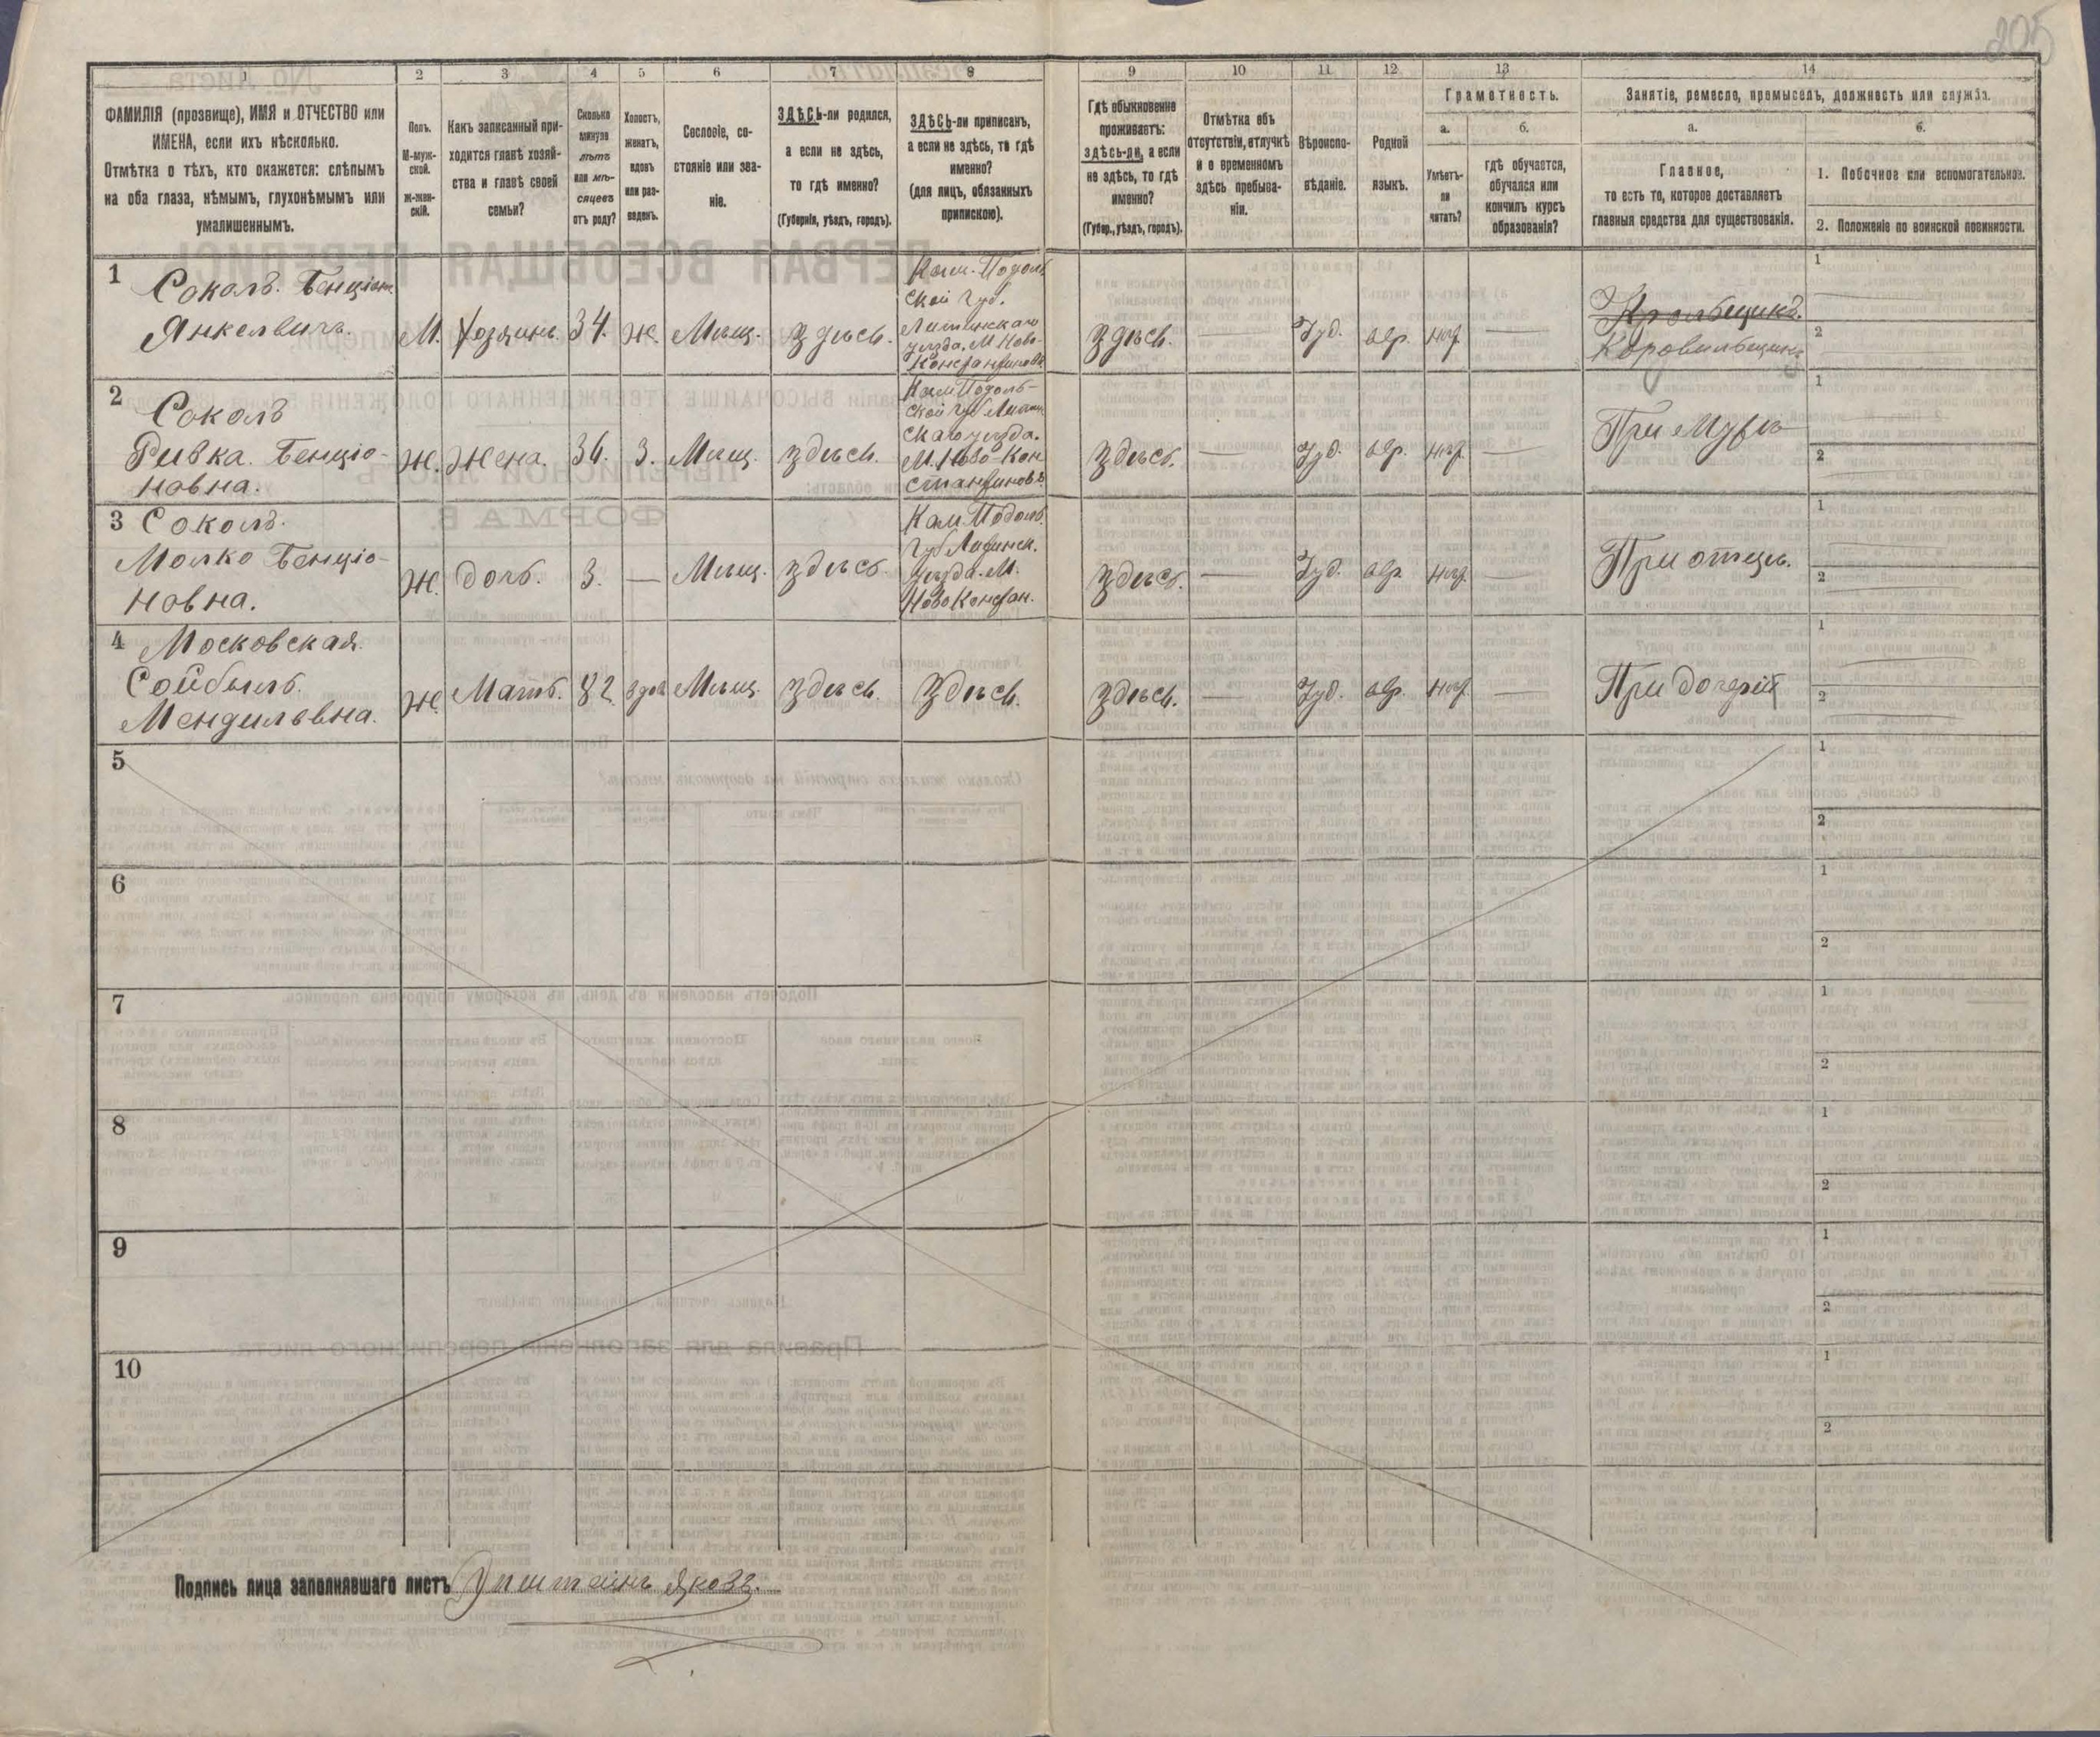 205
1
2
3
4
5
6
7
8
9
10
11
12
13
14
ФАМИЛІЯ (прозвище), ИМЯ и ОТЧЕСТВО или
ИМЕНА, если ихъ нѣсколько.
Отмѣтка о тѣхъ, кто окажется: слѣпымъ
на оба глаза, нѣмымъ, глухонѣмымъ или
умалишеннымъ.
Полъ.
М-муж-
ской.
ж-жен-
скій.
Какъ записанный при-
ходится главѣ хозяй-
ства и главѣ своей
семьи?
Сколько
минуло
лѣтъ
или мѣ-
сяцевъ
отъ роду?
Холостъ,
женатъ,
вдовъ
или раз-
веденъ.
Сословіе, со-
стояніе или зва-
ніе.
ЗДѢСЬ-ли родился,
а если не здѣсь,
то гдѣ именно?
(Губернія, уѣздъ, городъ).
ЗДѢСЬ-ли приписанъ,
а если не здѣсь, то гдѣ
именно?
(для лицъ, обязанныхъ
припискою).
Гдѣ обыкновенно
проживаетъ:
здѣсь-ли, а если
не здѣсь, то гдѣ
именно?
(Губер., уѣздъ, городъ).
Отмѣтка объ
отсутствіи, отлучкѣ
и о временномъ
здѣсь пребыва-
ніи.
Вѣроиспо-
вѣданіе.
Родной
языкъ.
Грамотность.
а.
б.
Умѣетъ-
ли
читать?
гдѣ обучается,
обучался или
кончилъ курсъ
образованія?
Занятіе, ремесло, промыселъ, должность или служба.
а.
б.
Главное,
то есть то, которое доставляетъ
главныя средства для существованія.
1. Побочное или вспомогательное.
2. Положеніе по воинской повинности.
1
Соколъ. Бенціонъ
Янкелвичъ.
М.
Хозяинъ.
34.
Ж.
Мѣщ.
здѣсь.
Кам. Подоль
ской Губ.
Литинскаго
уѣзда. М. Ново-
Константиновъ
здѣсь.
—
Іуд.
евр.
нѣт
—
Коровильщикъ
1
2
2
Соколъ
Ривка. Бенціо-
новна.
Ж.
Жена.
36.
З.
Мѣщ.
здѣсь.
Кам. Подоль-
ской Губ Литин
скаго уѣзда.
М. Ново-Кон
стантиновъ
здѣсь.
—
Іуд.
евр.
нѣт
—
При Мужѣ
1
2
3 Соколъ.
Молко Бенціо-
новна.
Ж.
дочь.
3.
—
Мѣщ.
здѣсь
Кам. Подоль.
Губ Литинск.
уѣзда. М.
Ново Констан.
здѣсь.
—
Іуд.
евр.
нѣт
—
При отцѣ.
1
2
4 Московская.
Сойбыль.
Мендильвна.
Ж.
Мать.
82
вдов
Мѣщ.
здѣсь.
Здѣсь.
здѣсь.
—
Іуд.
евр.
нѣт
—
При дочерій
1
2
5
1
2
6
1
2
7
1
2
8
1
2
9
1
2
10
1
2
Подпись лица заполнявшаго листъ